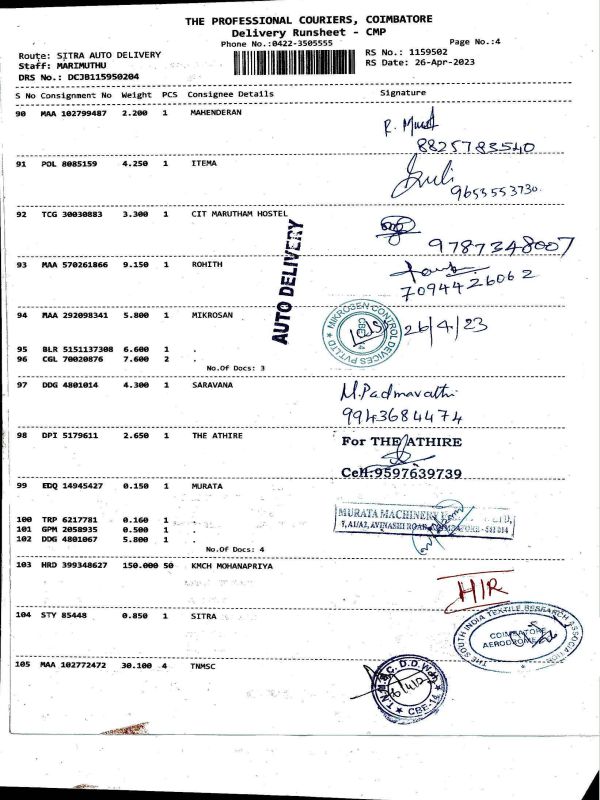 THE PROFESSIONAL COURIERS, COIMBATORE
Delivery Runsheet - CMP
Phone No.:0422-3505555
Page No.:4
Route: SITRA AUTO DELIVERY
RS No.: 1159502
Staff: MARIMUTHU
RS Date: 26-Apr-2023
DRS No.: DCJB115950204
S No Consignment No Weight PCS Consignee Details Signature
90 MAA 102799487 2.200 1 MAHENDERAN
R.
8825783540
91 POL 8085159 4.250 1 ITEMA
9655553730
92 TCG 30030883 3.300 1 CIT MARUTHAM HOSTEL
9787348007
AUTO DELIVERY
93 MAA 570261866 9.150 1 ROHITH
7094426062
94 MAA 292098341 5.800 1 MIKROSAN
MIKROSEN CONTROL DEVICES PVT LTD
CBE-14
26/4/23
95 BLR 5151137308 6.600 1 .
96 CGL 70020876 7.600 2 .
No.Of Docs: 3
97 DDG 4801014 4.300 1 SARAVANA
M.Padmavathi
9943684474
98 DPI 5179611 2.650 1 THE ATHIRE
For THE ATHIRE
Cell:9597639739
99 EDQ 14945427 0.150 1 MURATA
MURATA MACHINERY
7, A1/A2, AVINASHI ROAD, COIMBATORE - 641 014
100 TRP 6217781 0.160 1 .
101 GPM 2058935 0.500 1 .
102 DDG 4801067 5.800 1 .
No.Of Docs: 4
103 HRD 399348627 150.000 50 KMCH MOHANAPRIYA
H/R
104 STY 85448 0.850 1 SITRA
THE SOUTH INDIA TEXTILE RESEARCH ASSOCIATION
COIMBATORE
AERODROME
105 MAA 102772472 30.100 4 TNMSC
T.N.M.S.C. D.D.W.H
CBE-14